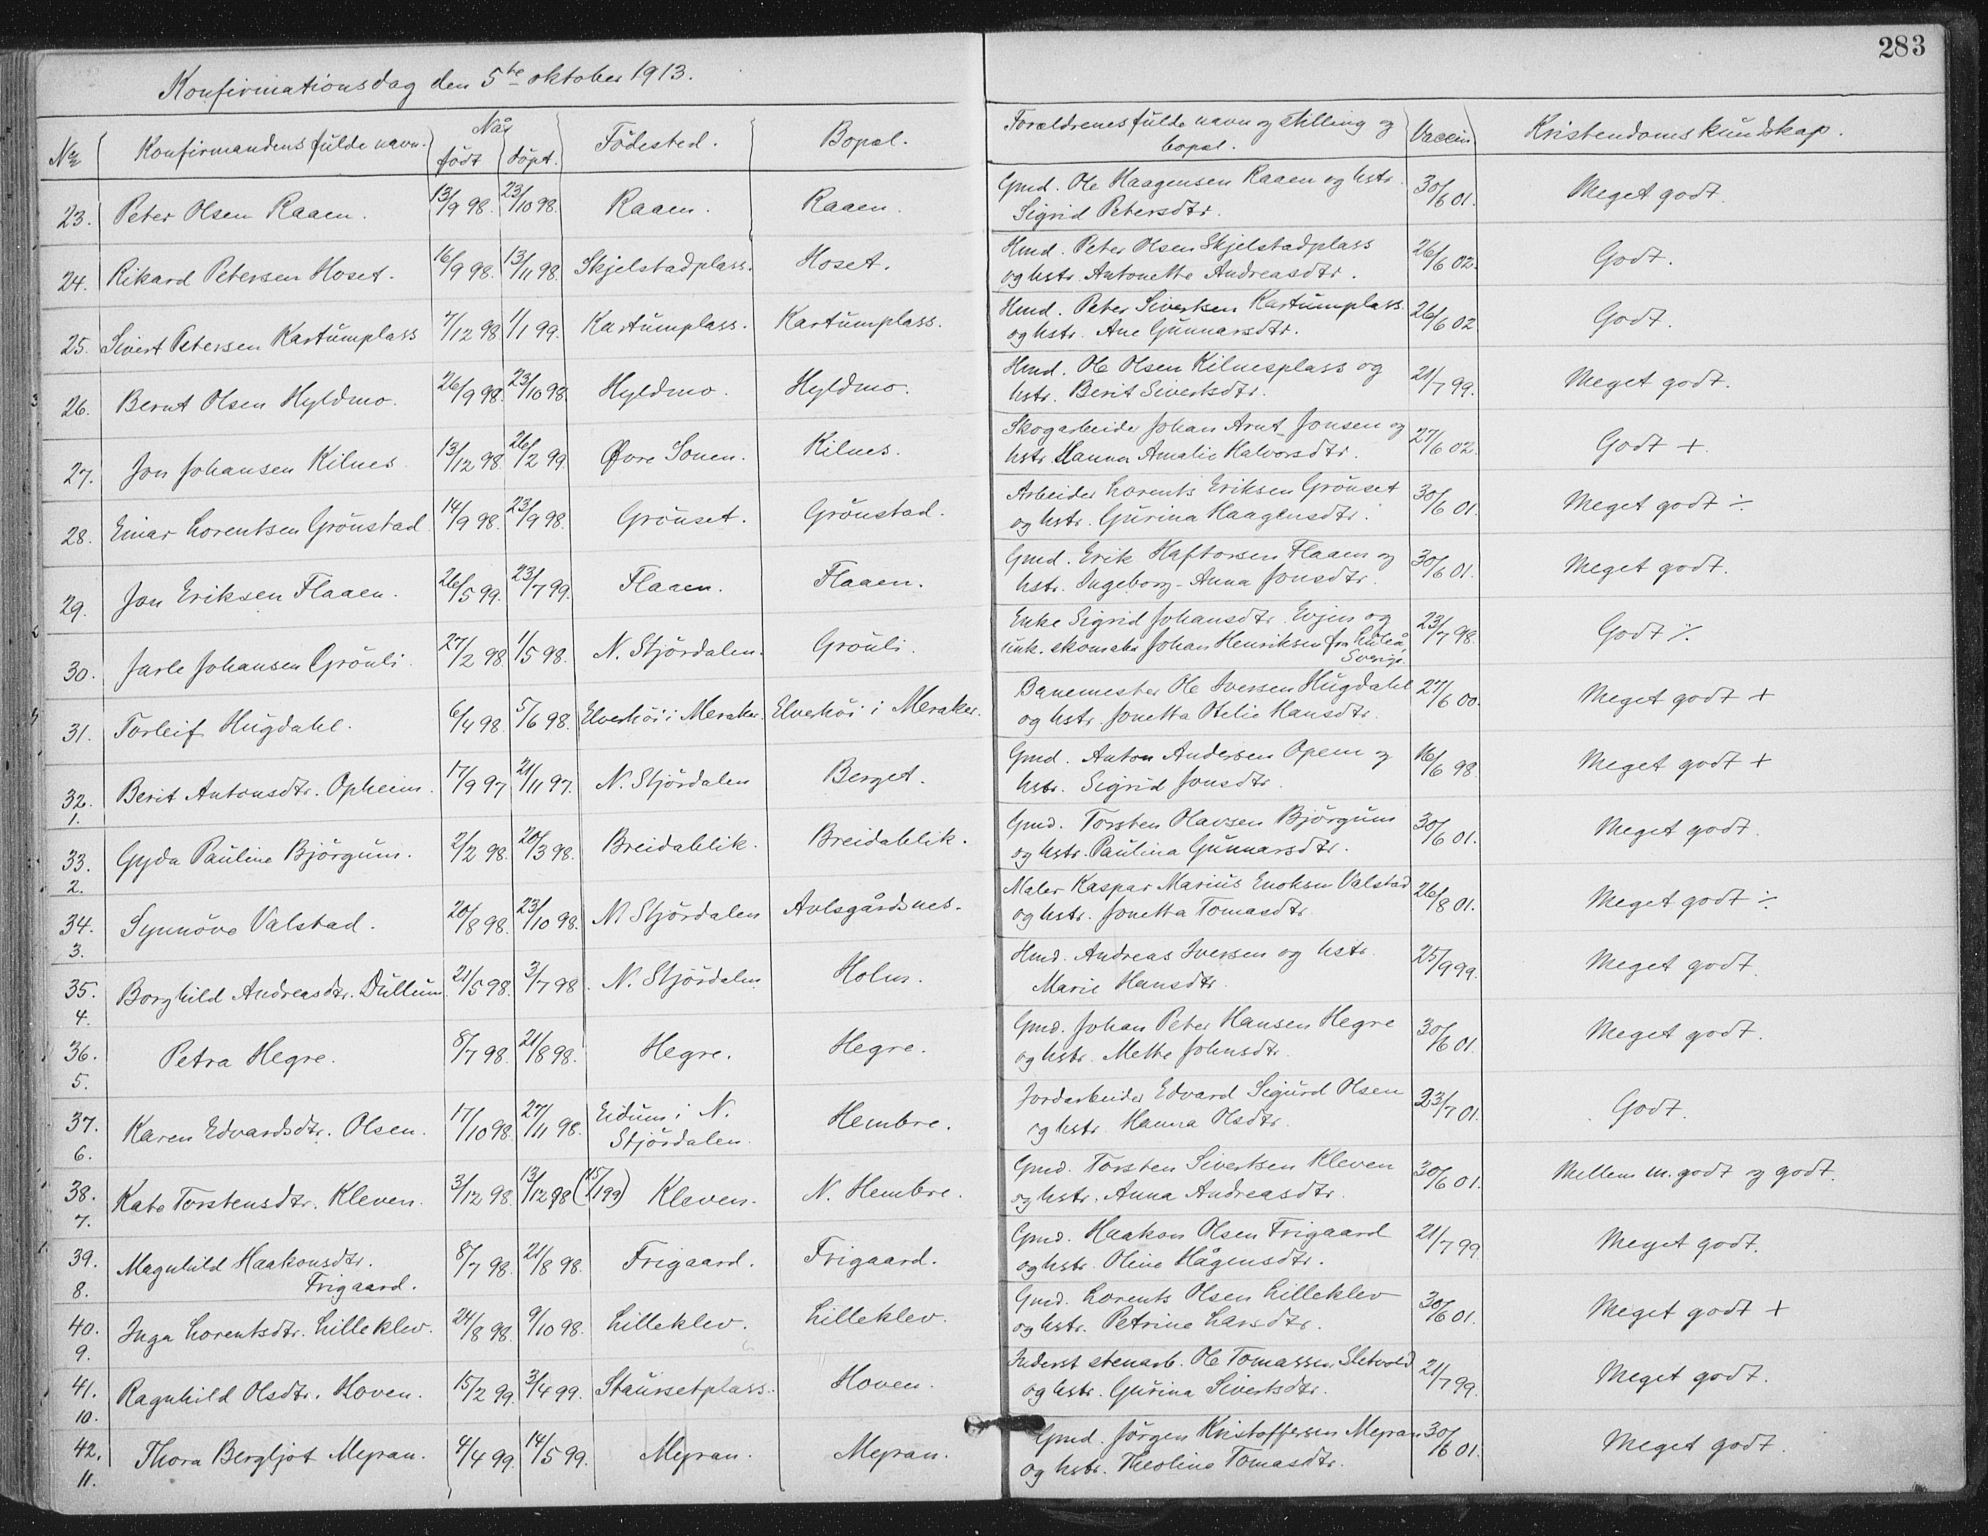 283
Konfirmationsdag den 5te oktober 1913.
No Konfirmandens fulde navn. Når født døpt. Fødested. Bopæl. Forældrenes fulde navn og stilling og bopæl. Vaccin. Kristendomskundskap.
23. Peter Olsen Raaen. 13/9 98. 23/10 98. Raaen. Raaen. Gmd. Ole Haagensen Raaen og hstr. 30/6 01. Meget godt.
Sigrid Petersdtr.
24. Rikard Petersen Hoset. 16/9 98. 13/11 98. Skjelstadplass. Hoset. Hmd. Peter Olsen Skjelstadplass 26/6 02. Godt.
og hstr. Antonette Andreasdtr.
25. Sivert Petersen Kartumplass 7/12 98. 1/1 99. Kartumplass. Kartumplass. Hmd. Peter Sivertsen Kartumplass 26/6 02. Godt.
og hstr. Ane Gunnarsdtr.
26. Bernt Olsen Hyldmo. 26/9 98. 23/10 98. Hyldmo. Hyldmo. Hmd. Ole Olsen Kilnesplass og 21/7 99. Meget godt.
hstr. Berit Sivertsdtr.
27. Jon Johansen Kilnes. 13/12 98. 26/2 99. Øvre Sonen. Kilnes. Skogarbeider Johan Arnt Jonsen og 27/6 02. Godt +
hstr. Hanna Amalie Halvorsdtr.
28. Einar Lorentsen Grønstad 14/9 98. 23/9 98. Grønset. Grønstad. Arbeider Lorents Eriksen Grønset 30/6 01. Meget godt ÷
og hstr. Gurina Haagensdtr.
29. Jon Eriksen Flaaen. 26/5 99. 23/7 99. Flaaen. Flaaen. Gmd. Erik Haftorsen Flaaen og 30/6 01. Meget godt.
hstr. Ingeborg-Anna Jonsdtr.
30. Jarle Johansen Grønli. 27/2 98. 1/5 98. N. Stjørdalen. Grønli. Enke Sigrid Johansdtr. Evjen og 23/7 98. Godt ÷
unk. skomaker Johan Henriksen fra Luleå,
Sverige.
31. Torleif Hugdahl. 6/4 98. 5/6 98. Elverhøi i Meraker. Elverhøi i Meraker. Banemester Ole Iversen Hugdahl 27/6 00. Meget godt +
og hstr. Jonetta Otelie Hansdtr.
32. Berit Antonsdtr. Opheim. 17/9 97 21/11 97. N. Stjørdalen Berget. Gmd. Anton Andersen Opem og 16/6 98. Meget godt +
1. hstr. Sigrid Jonsdtr.
33. Gyda Pauline Bjørgum. 2/2 98. 20/3 98. Breidablik. Breidablik. Gmd. Torsten Olavsen Bjørgum 30/6 01. Meget godt.
2. og hstr. Paulina Gunnarsdtr.
34. Synnøve Valstad. 20/8 98. 23/10 98. N. Stjørdalen Avlsgårdsnes. Maler Kaspar Marius Enoksen Valstad 26/8 01. Meget godt ÷
3. og hstr. Jonetta Tomasdtr.
35. Borghild Andreasdtr. Dullum 21/5 98. 3/7 98. N. Stjørdalen Holm. Hmd. Andreas Iversen og hstr. 25/9 99. Meget godt.
4. Marie Hansdtr.
36. Petra Hegre. 8/7 98. 21/8 98. Hegre. Hegre. Gmd. Johan Peter Hansen Hegre 30/6 01. Meget godt.
5. og hstr. Mette Johnsdtr.
37. Karen Edvardsdtr. Olsen. 17/10 98. 27/11 98. Eidum i N. Hembre. Jordarbeider Edvard Sigurd Olsen 23/7 01. Godt.
6. Stjørdalen. og hstr. Hanna Olsdtr.
38. Kato Torstensdtr. Kleven. 3/12 98. 13/12 98 (15/1 99) Kleven. N. Hembre. Gmd. Torsten Sivertsen Kleven 30/6 01. Mellem m. godt og godt.
7. og hstr. Anna Andreasdtr.
39. Magnhild Haakonsdtr. 8/7 98. 21/8 98. Frigaard. Frigaard. Gmd. Haakon Olsen Frigaard 21/7 99. Meget godt.
8. Frigaard. og hstr. Oline Hågensdtr.
40. Inga Lorentsdtr. Lilleklev. 24/8 98. 9/10 98. Lilleklev. Lilleklev. Gmd. Lorents Olsen Lilleklev 30/6 01. Meget godt +
9. og hstr. Petrine Larsdtr.
41. Ragnhild Olsdtr. Hoven. 15/2 99. 3/4 99. Staursetplass. Hoven. Inderst stenarb. Ole Tomassen Sletvold 21/7 99. Meget godt.
10. og hstr. Gurina Sivertsdtr.
42. Thora Bergljot Meyran. 4/4 99. 14/5 99. Meyran. Meyran. Gmd. Jørgen Kristoffersen Meyran 30/6 01. Meget godt.
11. og hstr. Theoline Tomasdtr.